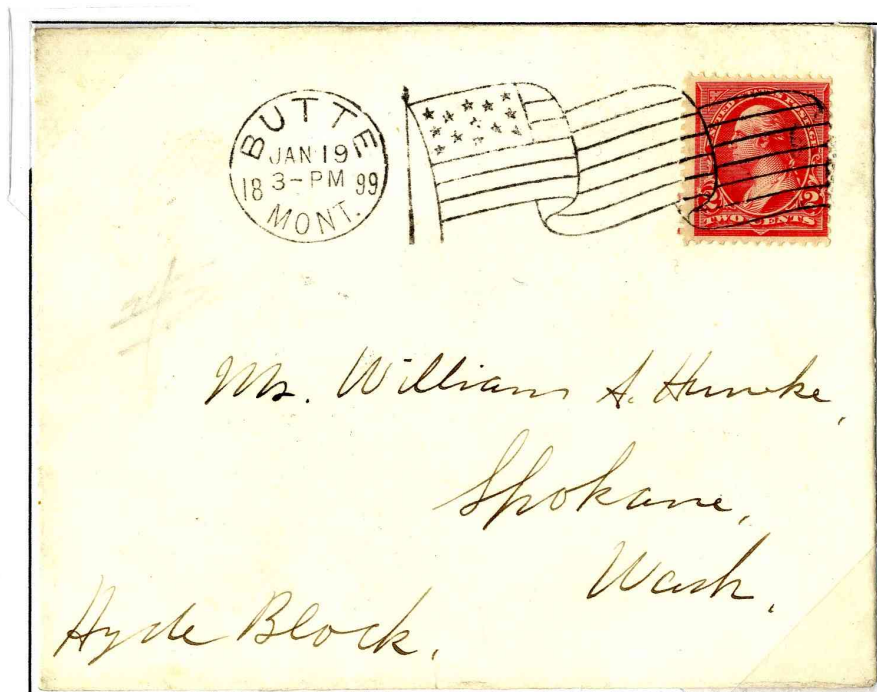 BUTTE
JAN 19
18 3-PM 99
MONT.
TWO CENTS
2 2
Mr. William A. Huneke,
Spokane,
Wash.
Hyde Block.